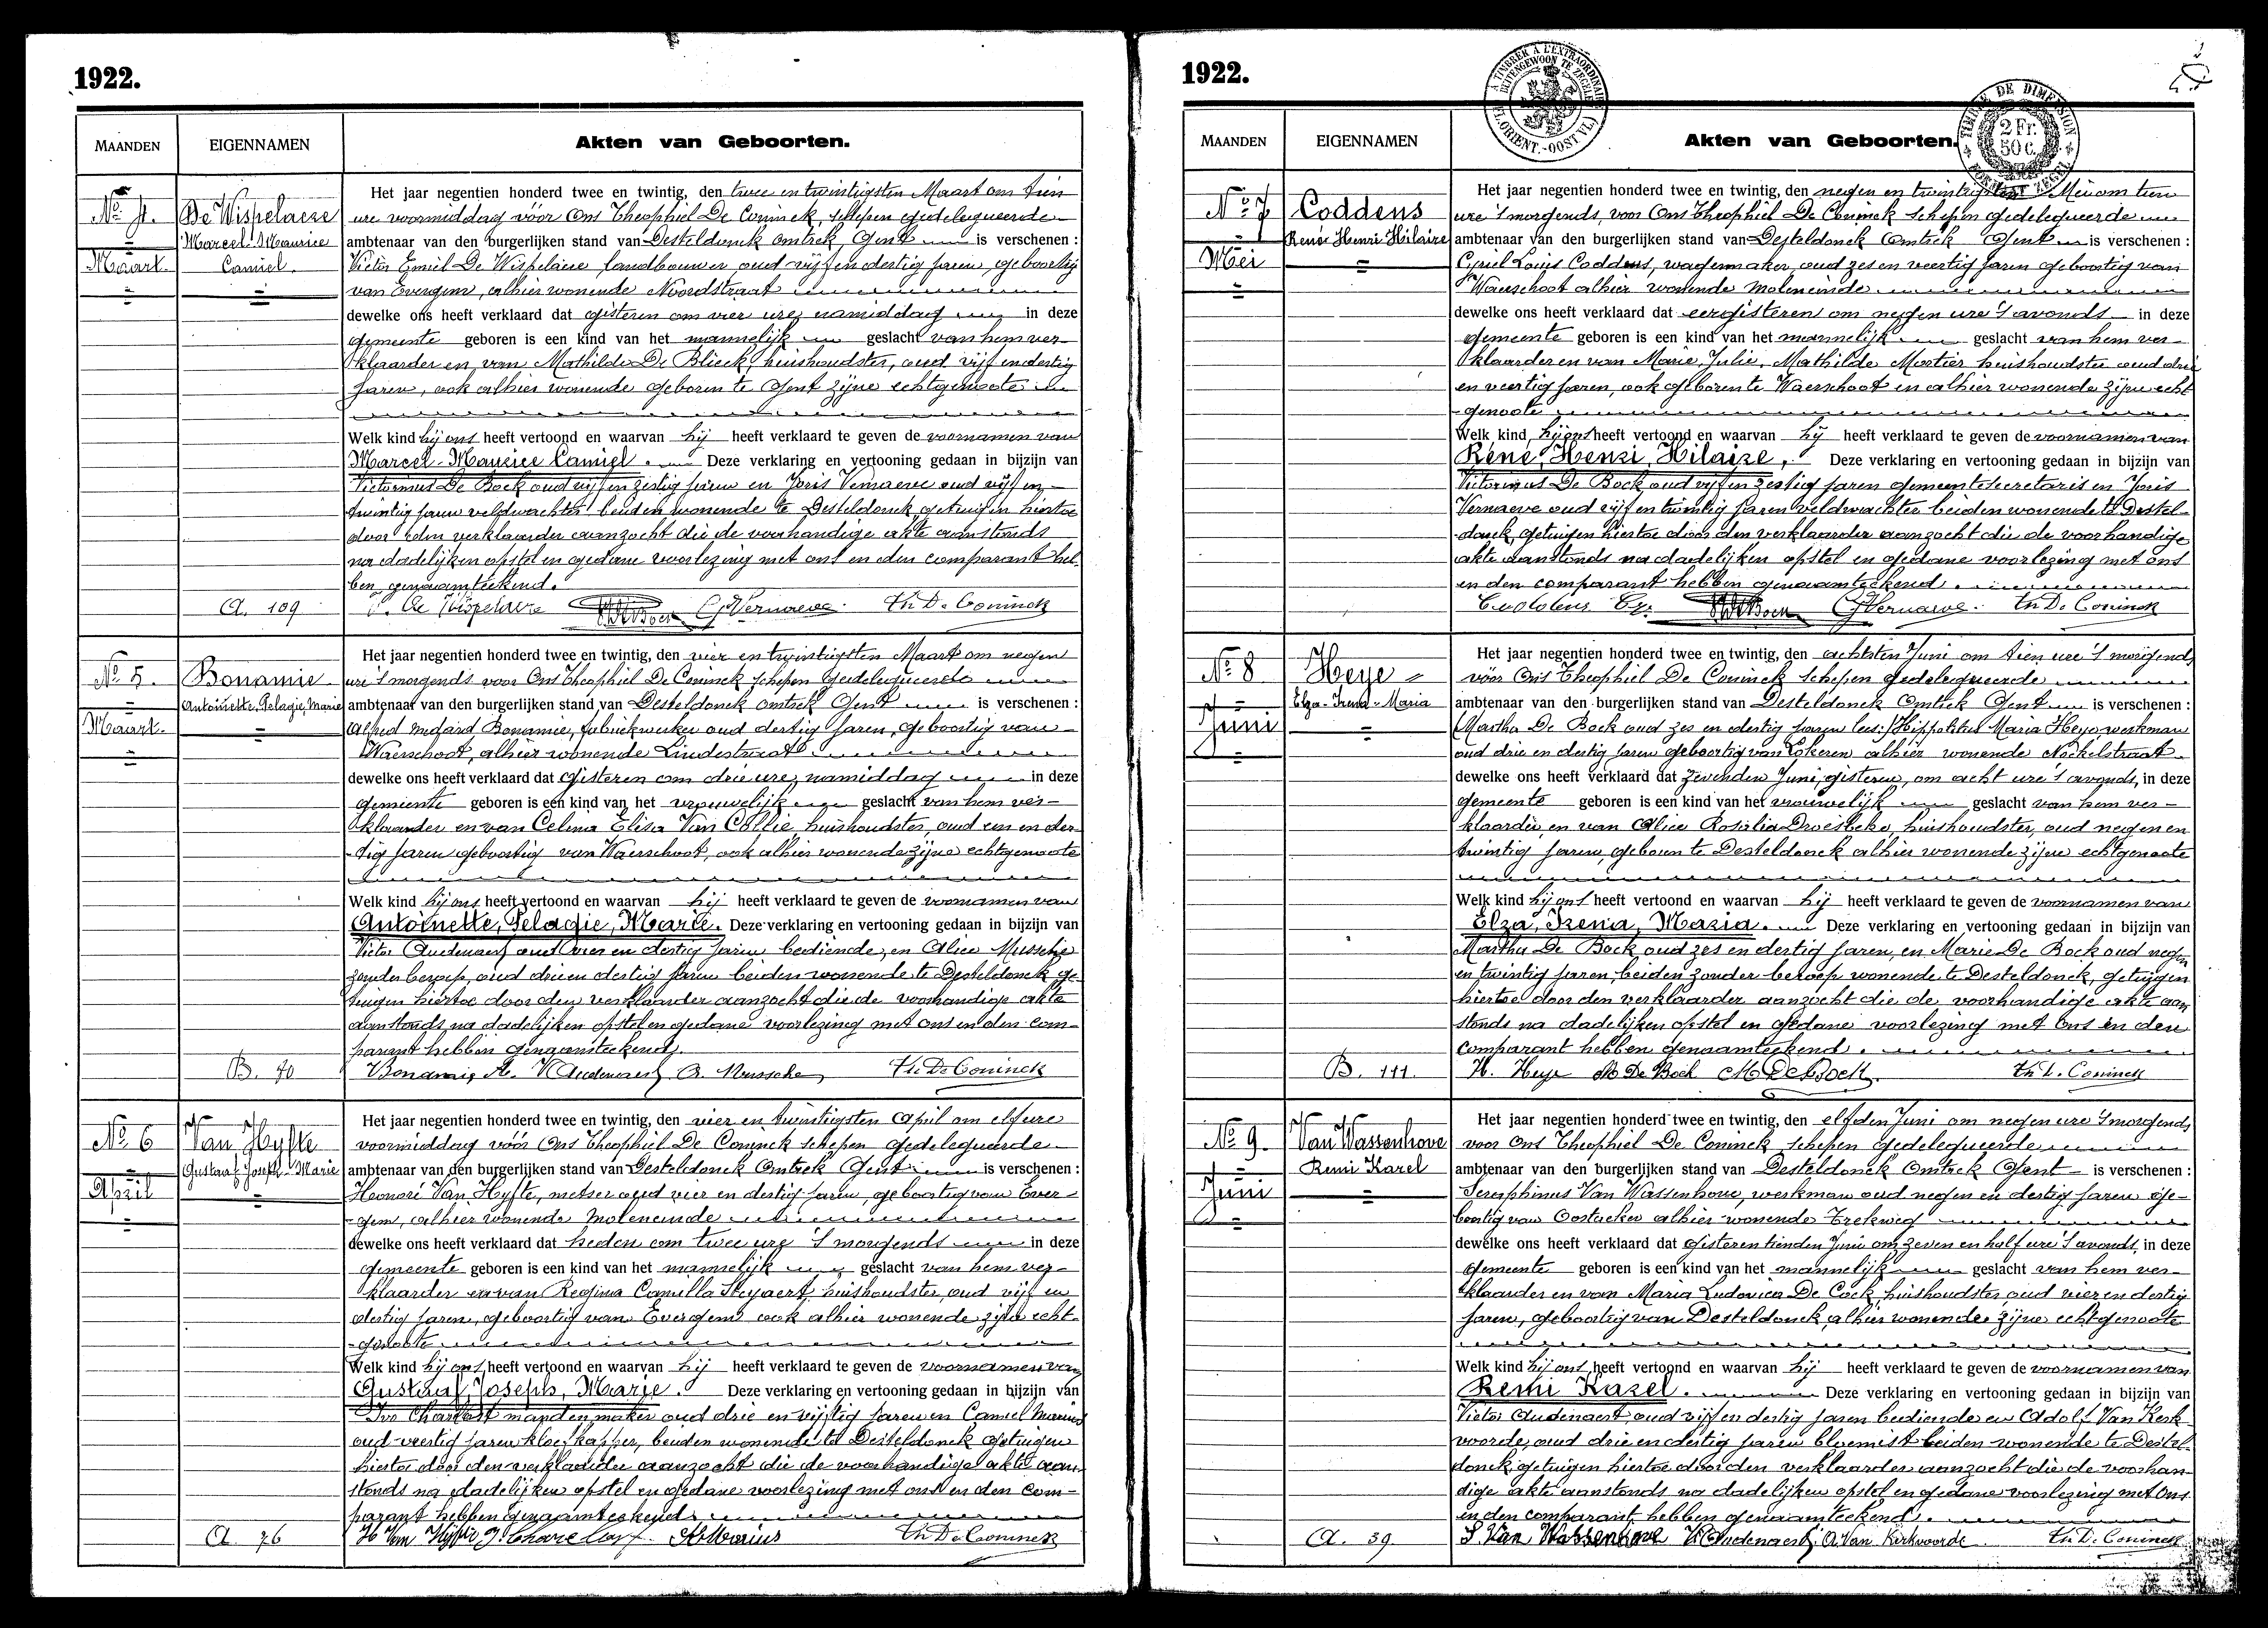 1922.
MAANDEN
EIGENNAMEN
Akten van Geboorten.
No. 4.
Maart.
De Wispelaere
Marcel-Maurice
Camiel.
Het jaar negentien honderd twee en twintig, den twee en twintigsten Maart om tien
ure voormiddag vóór Ons Theophiel De Coninck, schepen gedelegueerde
ambtenaar van den burgerlijken stand van Desteldonck omtrek Gent is verschenen :
Victor Emiel De Wispelaere landbouwer oud vijf en dertig jaren, geboortig
van Evergem, alhier wonende Noordstraat
dewelke ons heeft verklaard dat gisteren om vier ure namiddag in deze
gemeente geboren is een kind van het mannelijk geslacht van hem ver-
klaarder en van Mathilde De Blieck, huishoudster, oud vijf en dertig
jaren, ook alhier wonende geboren te Gent zijne echtgenoote
Welk kind hij ons heeft vertoond en waarvan hij heeft verklaard te geven de voornamen van
Marcel-Maurice Camiel. Deze verklaring en vertooning gedaan in bijzijn van
Victorinus De Bock oud vijf en zestig jaren en Joris Vernaeve oud vijf en
twintig jaren veldwachter beiden wonende te Desteldonck, getuigen hiertoe
door den verklaarder aanzocht die de voorhandige akte aanstonds
na dadelijken opstel en gedane voorlezing met ons en den comparant heb-
ben genaamteekend.
A. 109
V. De Wispelaere De Bock G Vernaeve. Th. De Coninck
No. 5.
Maart.
Bonamie
Antoinette, Pelagie, Marie
Het jaar negentien honderd twee en twintig, den vier en twintigsten Maart om negen
ure 's morgends voor Ons Theophiel De Coninck schepen gedelegueerde
ambtenaar van den burgerlijken stand van Desteldonck omtrek Gent is verschenen :
Alfred Medard Bonamie, fabriekwerker oud dertig jaren, geboortig van
Waerschoot, alhier wonende Lindestraat
dewelke ons heeft verklaard dat gisteren om drie ure, namiddag in deze
gemeente geboren is een kind van het vrouwelijk geslacht van hem ver-
klaarder en van Celina Elisa Van Collie, huishoudster, oud een en der-
tig jaren geboortig van Waerschoot, ook alhier wonende zijne echtgenoote
Welk kind hij ons heeft vertoond en waarvan hij heeft verklaard te geven de voornamen van
Antoinette, Pelagie, Marie. Deze verklaring en vertooning gedaan in bijzijn van
Victor Audenaert oud vier en dertig jaren bediende, en Alice Mussche
zonder beroep, oud drie en dertig jaren beiden wonende te Desteldonck ge-
tuigen hiertoe door den verklaarder aanzocht die de voorhandige akte
aanstonds na dadelijken opstel en gedane voorlezing met ons en den com-
parant hebben genaamteekend.
B. 70
Bonamie A. V Audenaert A. Mussche Th. De Coninck
No. 6
April
Van Hyfte
Gustaaf Joseph-Marie
Het jaar negentien honderd twee en twintig, den vier en twintigsten April om elf ure
voormiddag vóór Ons Theophiel De Coninck schepen gedelegueerde
ambtenaar van den burgerlijken stand van Desteldonck Omtrek Gent is verschenen :
Honoré Van Hyfte, metser oud vier en dertig jaren, geboortig van Ever-
gem, alhier wonende Moleneinde
dewelke ons heeft verklaard dat heden om twee ure 's morgends in deze
gemeente geboren is een kind van het mannelijk geslacht van hem ver-
klaarder en van Regina Camilla Steyaert, huishoudster, oud vijf en
dertig jaren, geboortig van Evergem ook alhier wonende zijne echt-
genoote
Welk kind hij ons heeft vertoond en waarvan hij heeft verklaard te geven de voornamen van
Gustaaf, Joseph, Marie. Deze verklaring en vertooning gedaan in bijzijn van
Ivo mandenmaker oud drie en vijftig jaren en Camiel Marius
oud veertig jaren kloefkapper, beiden wonende te Desteldonck getuigen
hiertoe door den verklaarder aanzocht die de voorhandige akte aan-
stonds na dadelijken opstel en gedane voorlezing met ons en den com-
parant hebben genaamteekend.
A. 76
H Van Hyfte Marius Th. De Coninck
1922.
TIMBRE A L'EXTRAORDINAIRE
BUITENGEWOON TE ZEGELEN
(FL. ORIENT.-OOST VL.)
TIMBRE DE DIMENSION
2 Fr.
50 c.
FORMAAT ZEGEL
MAANDEN
EIGENNAMEN
Akten van Geboorten.
No. 7
Mei
Coddens
René Henri Hilaire
Het jaar negentien honderd twee en twintig, den negen en twintigsten Mei om tien
ure 's morgends, voor Ons Theophiel De Coninck schepen gedelegueerde
ambtenaar van den burgerlijken stand van Desteldonck Omtrek Gent is verschenen :
Cyriel Louis Coddens, wagenmaker, oud zes en veertig jaren geboortig van
Waerschoot alhier wonende Moleneinde
dewelke ons heeft verklaard dat eergisteren om negen ure 's avonds in deze
gemeente geboren is een kind van het mannelijk geslacht van hem ver-
klaarder en van Marie, Julie, Mathilde Mortier huishoudster oud drie
en veertig jaren, ook geboren te Waerschoot en alhier wonende zijne echt-
genoote
Welk kind hij ons heeft vertoond en waarvan hij heeft verklaard te geven de voornamen van
René, Henri, Hilaire, Deze verklaring en vertooning gedaan in bijzijn van
Victorinus De Bock, oud vijf en zestig jaren gemeentesecretaris en Joris
Vernaeve oud vijf en twintig jaren veldwachter beiden wonende te Destel-
donck, getuigen hiertoe door den verklaarder aanzocht die de voorhandige
akte aanstonds na dadelijken opstel en gedane voorlezing met ons
en den comparant hebben genaamteekend.
Coddens Cy. De Bock G Vernaeve. Th. De Coninck
No. 8
Juni
Heye
Elza-Irena-Maria
Het jaar negentien honderd twee en twintig, den achtsten Juni om tien ure 's morgends
vóór Ons Theophiel De Coninck schepen gedelegueerde
ambtenaar van den burgerlijken stand van Desteldonck Omtrek Gent is verschenen :
Martha De Bock oud zes en dertig jaren lees: Hippolitus Maria Heye, werkman
oud drie en dertig jaren geboortig van Lokeren, alhier wonende Nockelstraat
dewelke ons heeft verklaard dat zevenden Juni, gisteren, om acht ure 's avonds, in deze
gemeente geboren is een kind van het vrouwelijk geslacht van hem ver-
klaarder, en van Alice Rosalia Droesbeke, huishoudster, oud negen en
twintig jaren, geboren te Desteldonck alhier wonende zijne echtgenoote
Welk kind hij ons heeft vertoond en waarvan hij heeft verklaard te geven de voornamen van
Elza, Irena, Maria. Deze verklaring en vertooning gedaan in bijzijn van
Martha De Bock oud zes en dertig jaren, en Marie De Bock oud negen
en twintig jaren, beiden zonder beroep wonende te Desteldonck, getuigen
hiertoe door den verklaarder aanzocht die de voorhandige akte aan-
stonds na dadelijken opstel en gedane voorlezing met Ons en den
comparant hebben genaamteekend.
B. 111.
H. Heye M De Bock M De Bock. Th D. Coninck
No. 9.
Juni
Van Wassenhove
Remi Karel
Het jaar negentien honderd twee en twintig, den elfden Juni om negen ure 's morgends
voor Ons Theophiel De Coninck, schepen gedelegueerde
ambtenaar van den burgerlijken stand van Desteldonck Omtrek Gent is verschenen :
Seraphinus Van Wassenhove, werkman oud negen en dertig jaren ge-
boortig van Oostacker alhier wonende Trekweg
dewelke ons heeft verklaard dat gisteren tienden Juni om zeven en half ure 's avonds, in deze
gemeente geboren is een kind van het mannelijk geslacht van hem ver-
klaarder en van Maria Ludovica De Cock huishoudster, oud vier en dertig
jaren, geboortig van Desteldonck, alhier wonende zijne echtgenoote
Welk kind hij ons heeft vertoond en waarvan hij heeft verklaard te geven de voornamen van
Remi Karel. Deze verklaring en vertooning gedaan in bijzijn van
Victor Audenaert oud vijf en dertig jaren bediende en Adolf Van Kerk-
voorde, oud drie en dertig jaren bloemist beiden wonende te Destel-
donck, getuigen hiertoe door den verklaarder aanzocht die de voorhan-
dige akte aanstonds na dadelijken opstel en gedane voorlezing met Ons
en den comparant, hebben genaamteekend.
A. 39
S. Van Wassenhove V. Audenaert A. Van Kerkvoorde Th. D. Coninck